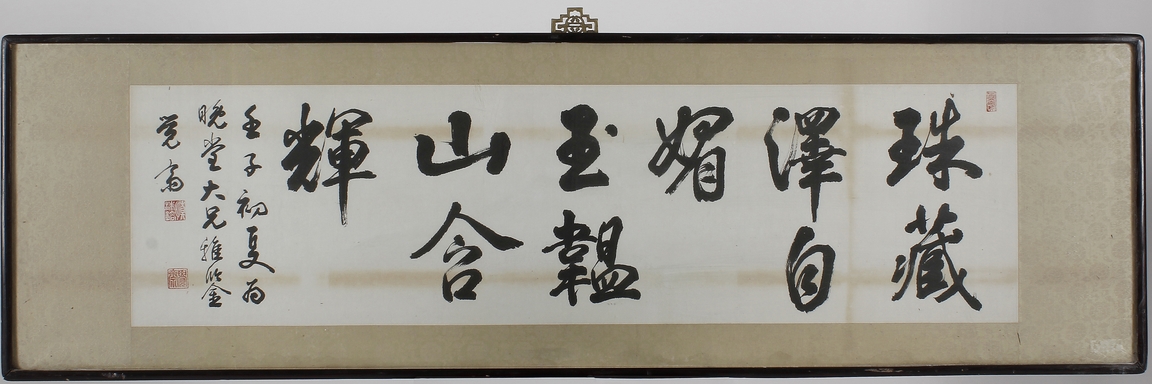 珠藏
澤自
媚
玉韞
山含
輝
壬子初夏為
晩堂大兄雅鑒
覚斎